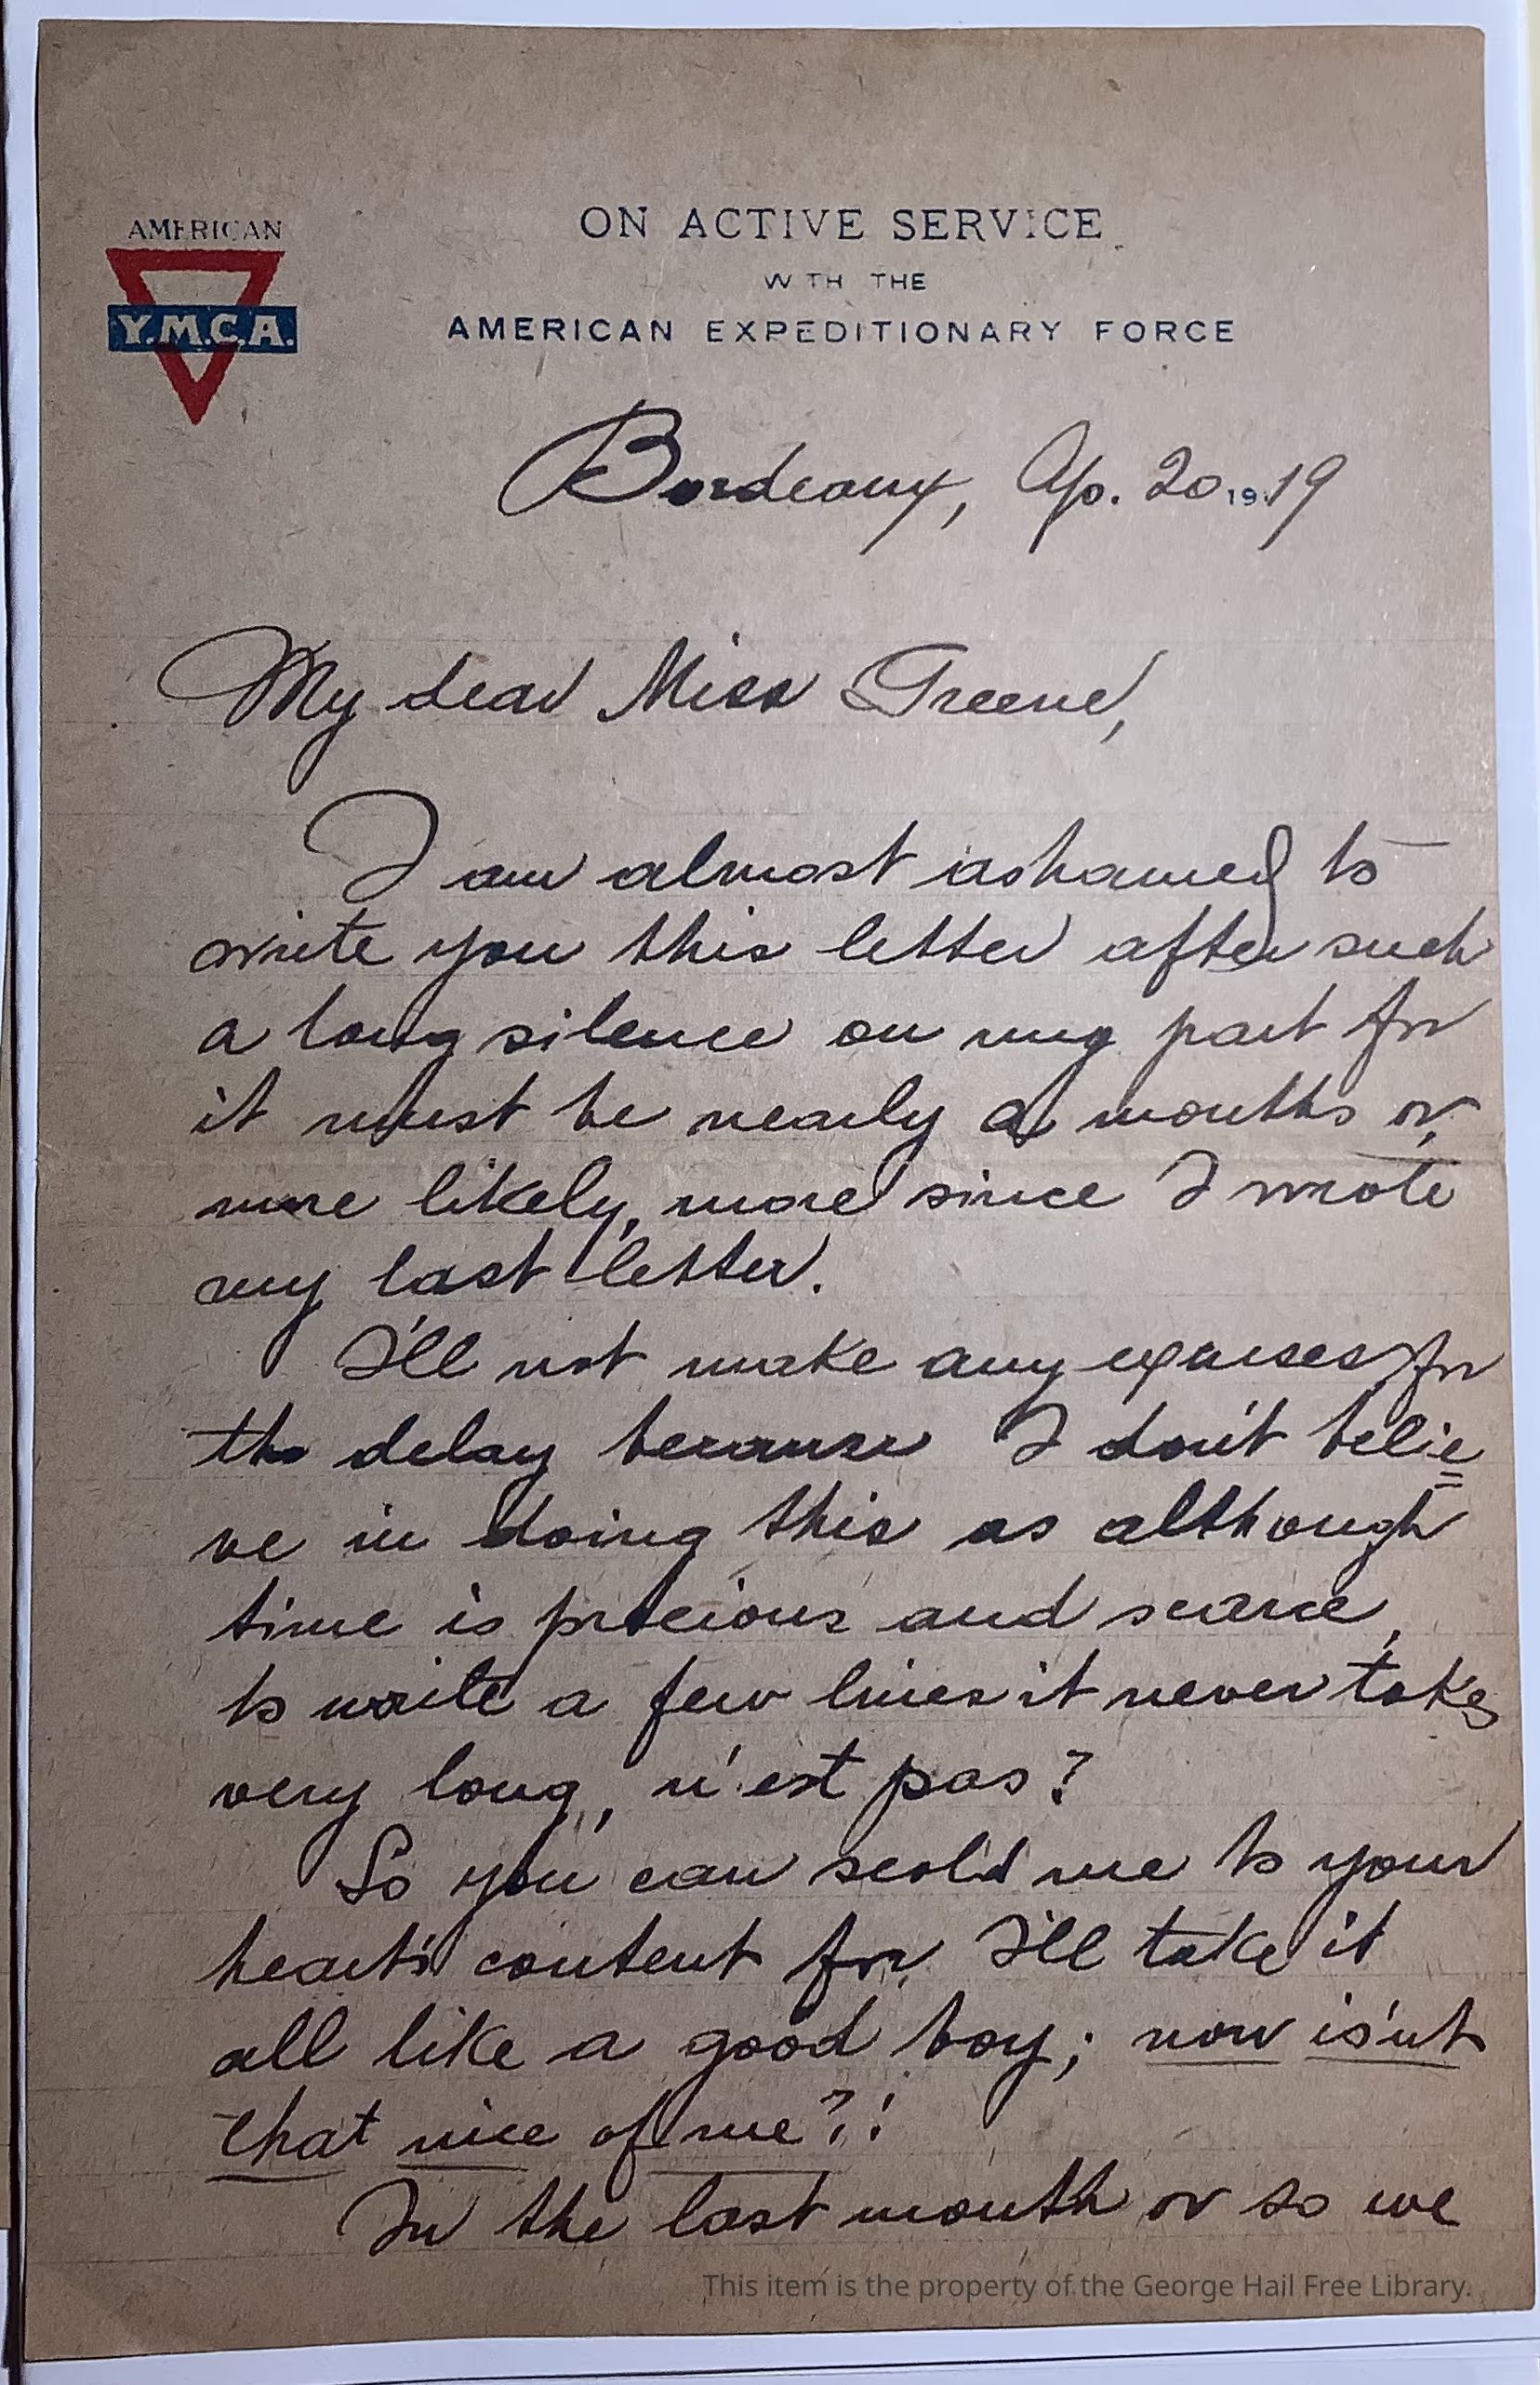 AMERICAN
Y.M.C.A.
ON ACTIVE SERVICE
W TH THE
AMERICAN EXPEDITIONARY FORCE
Bordeaux, Ap. 20 1919
My dear Miss Greene,
I am almost ashamed to
write you this letter after such
a long silence on my part for
it must be nearly a months or,
more likely, more since I wrote
my last letter.
I'll not make any excuses for
the delay because I don't belie=
ve in doing this as although
time is precious and scarce,
to write a few lines it never takes
very long, n'est pas?
So you can scold me to your
heart's content for I'll take it
all like a good boy; now is'nt
that nice of me?!
In the last month or so we
This item is the property of the George Hail Free Library.